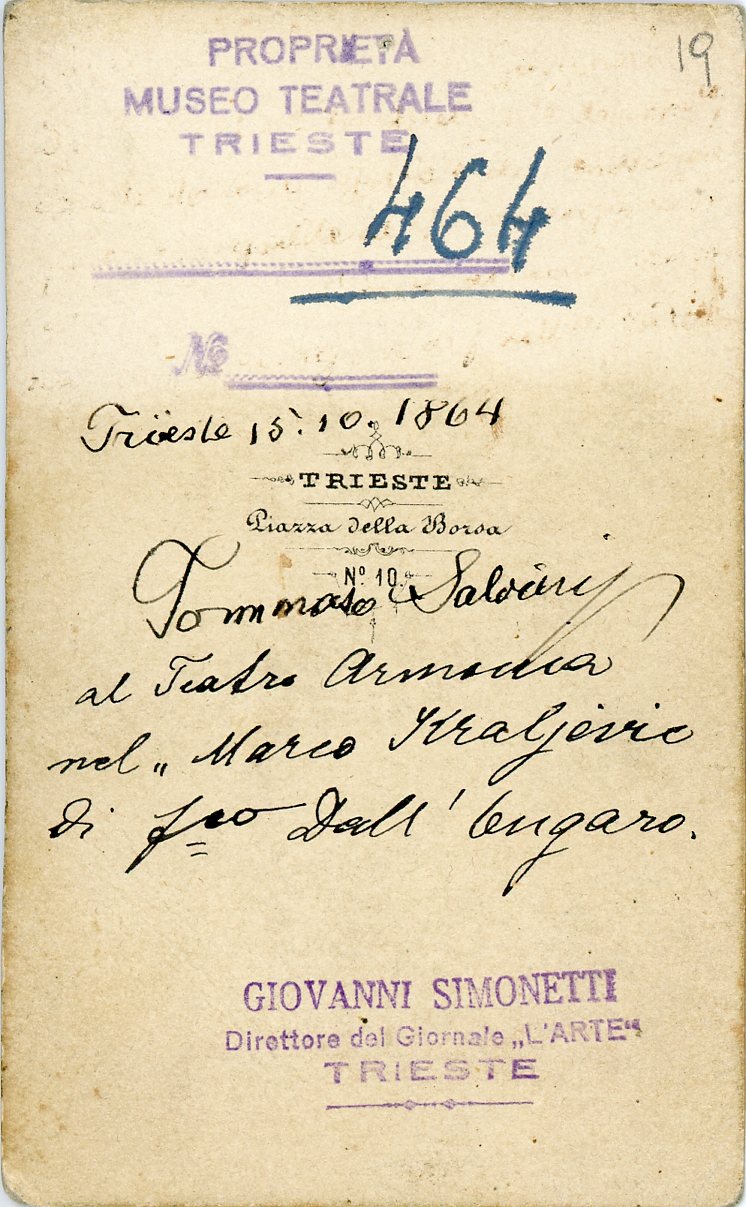 PROPRIETÀ
19
MUSEO TEATRALE
TRIESTE
464
No
Trieste 15.10.1864
TRIESTE
Piazza della Borsa
No 10.
Tommaso Salvini
al Teatro Armonia
nel „Marco Kraljevic
di fco Dall' Ongaro.
GIOVANNI SIMONETTI
Direttore del Giornale „L'ARTE“
TRIESTE